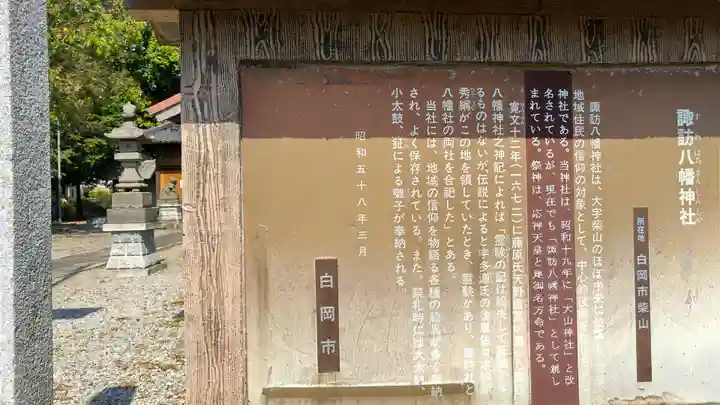 諏訪八幡神社
所在地 白岡市柴山
諏訪八幡神社は、大字柴山のほぼ中央に
地域住民の信仰の対象として、中心的
神社である。当神社は、昭和十九年に「大山神社」と改
名されているが、現在でも「諏訪八幡神社」として親し
まれている。祭神は、応神天皇と建御名方命である。
寛文十二年(一六七二)に藤原氏天野
八幡神社之神記によれば「霊験の記は紛失して
るものはないが、伝説によると宇多源氏の後胤佐々木
秀綱がこの地を領していたとき、霊験があり、諏訪社と
八幡社の両社を合祀した」とある。
当社には、地域の信仰を物語る各種の絵馬が多く奉納
され、よく保存されている。また、祭礼時には大太鼓、
小太鼓、鉦による囃子が奉納される。
昭和五十八年三月
白岡市